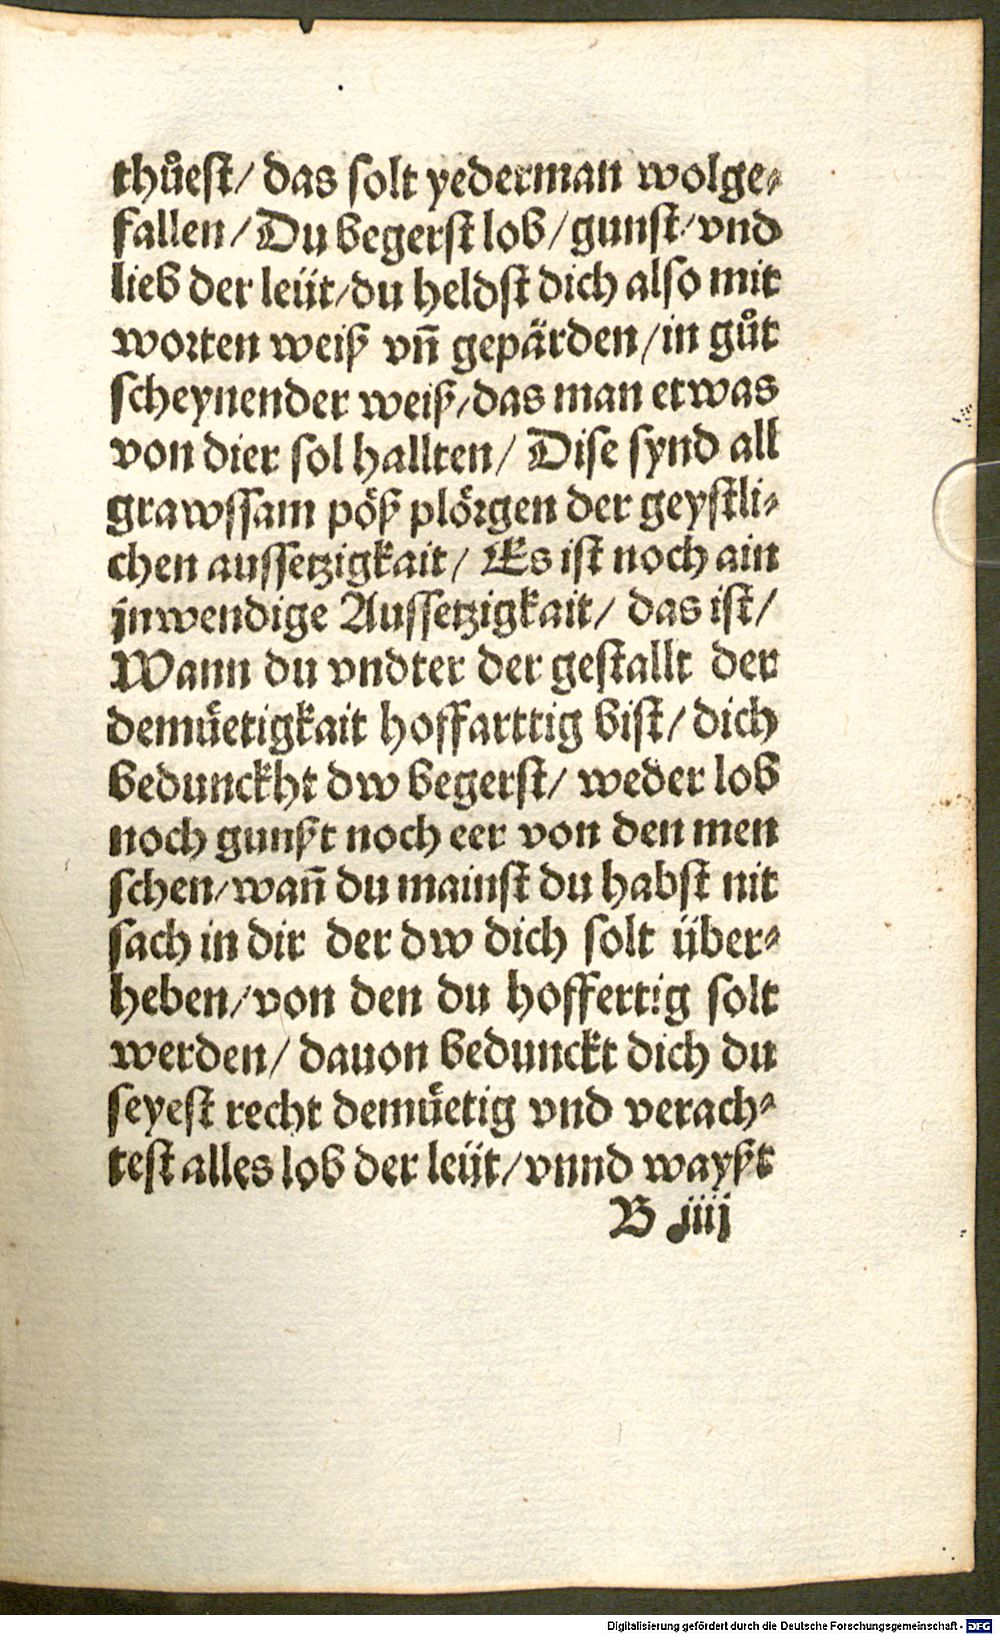 thůest/ das solt yederman wolge⸗
fallen/ Du begerst lob/ gunst/ vnd
lieb der leüt/ du heldst dich also mit
worten weiß vñ gepärden/ in gůt
scheynender weiß/ das man etwas
von dier sol hallten/ Dise synd all
grawssam pöß plörgen der geystli⸗
chen aussetzigkait/ Es ist noch ain
jnwendige Aussetzigkait/ das ist/
Wann du vndter der gestallt der
demüetigkait hoffarttig bist/ dich
bedunckht dw begerst/ weder lob
noch gunßt noch eer von den men
schen/ wañ du mainst du habst nit
sach in dir der dw dich solt über⸗
heben/ von den du hoffertig solt
werden/ dauon bedunckt dich du
seyest recht demüetig vnd verach⸗
test alles lob der leüt/ vnnd wayßt
B iiij
Digitalisierung gefördert durch die Deutsche Forschungsgemeinschaft - DFG